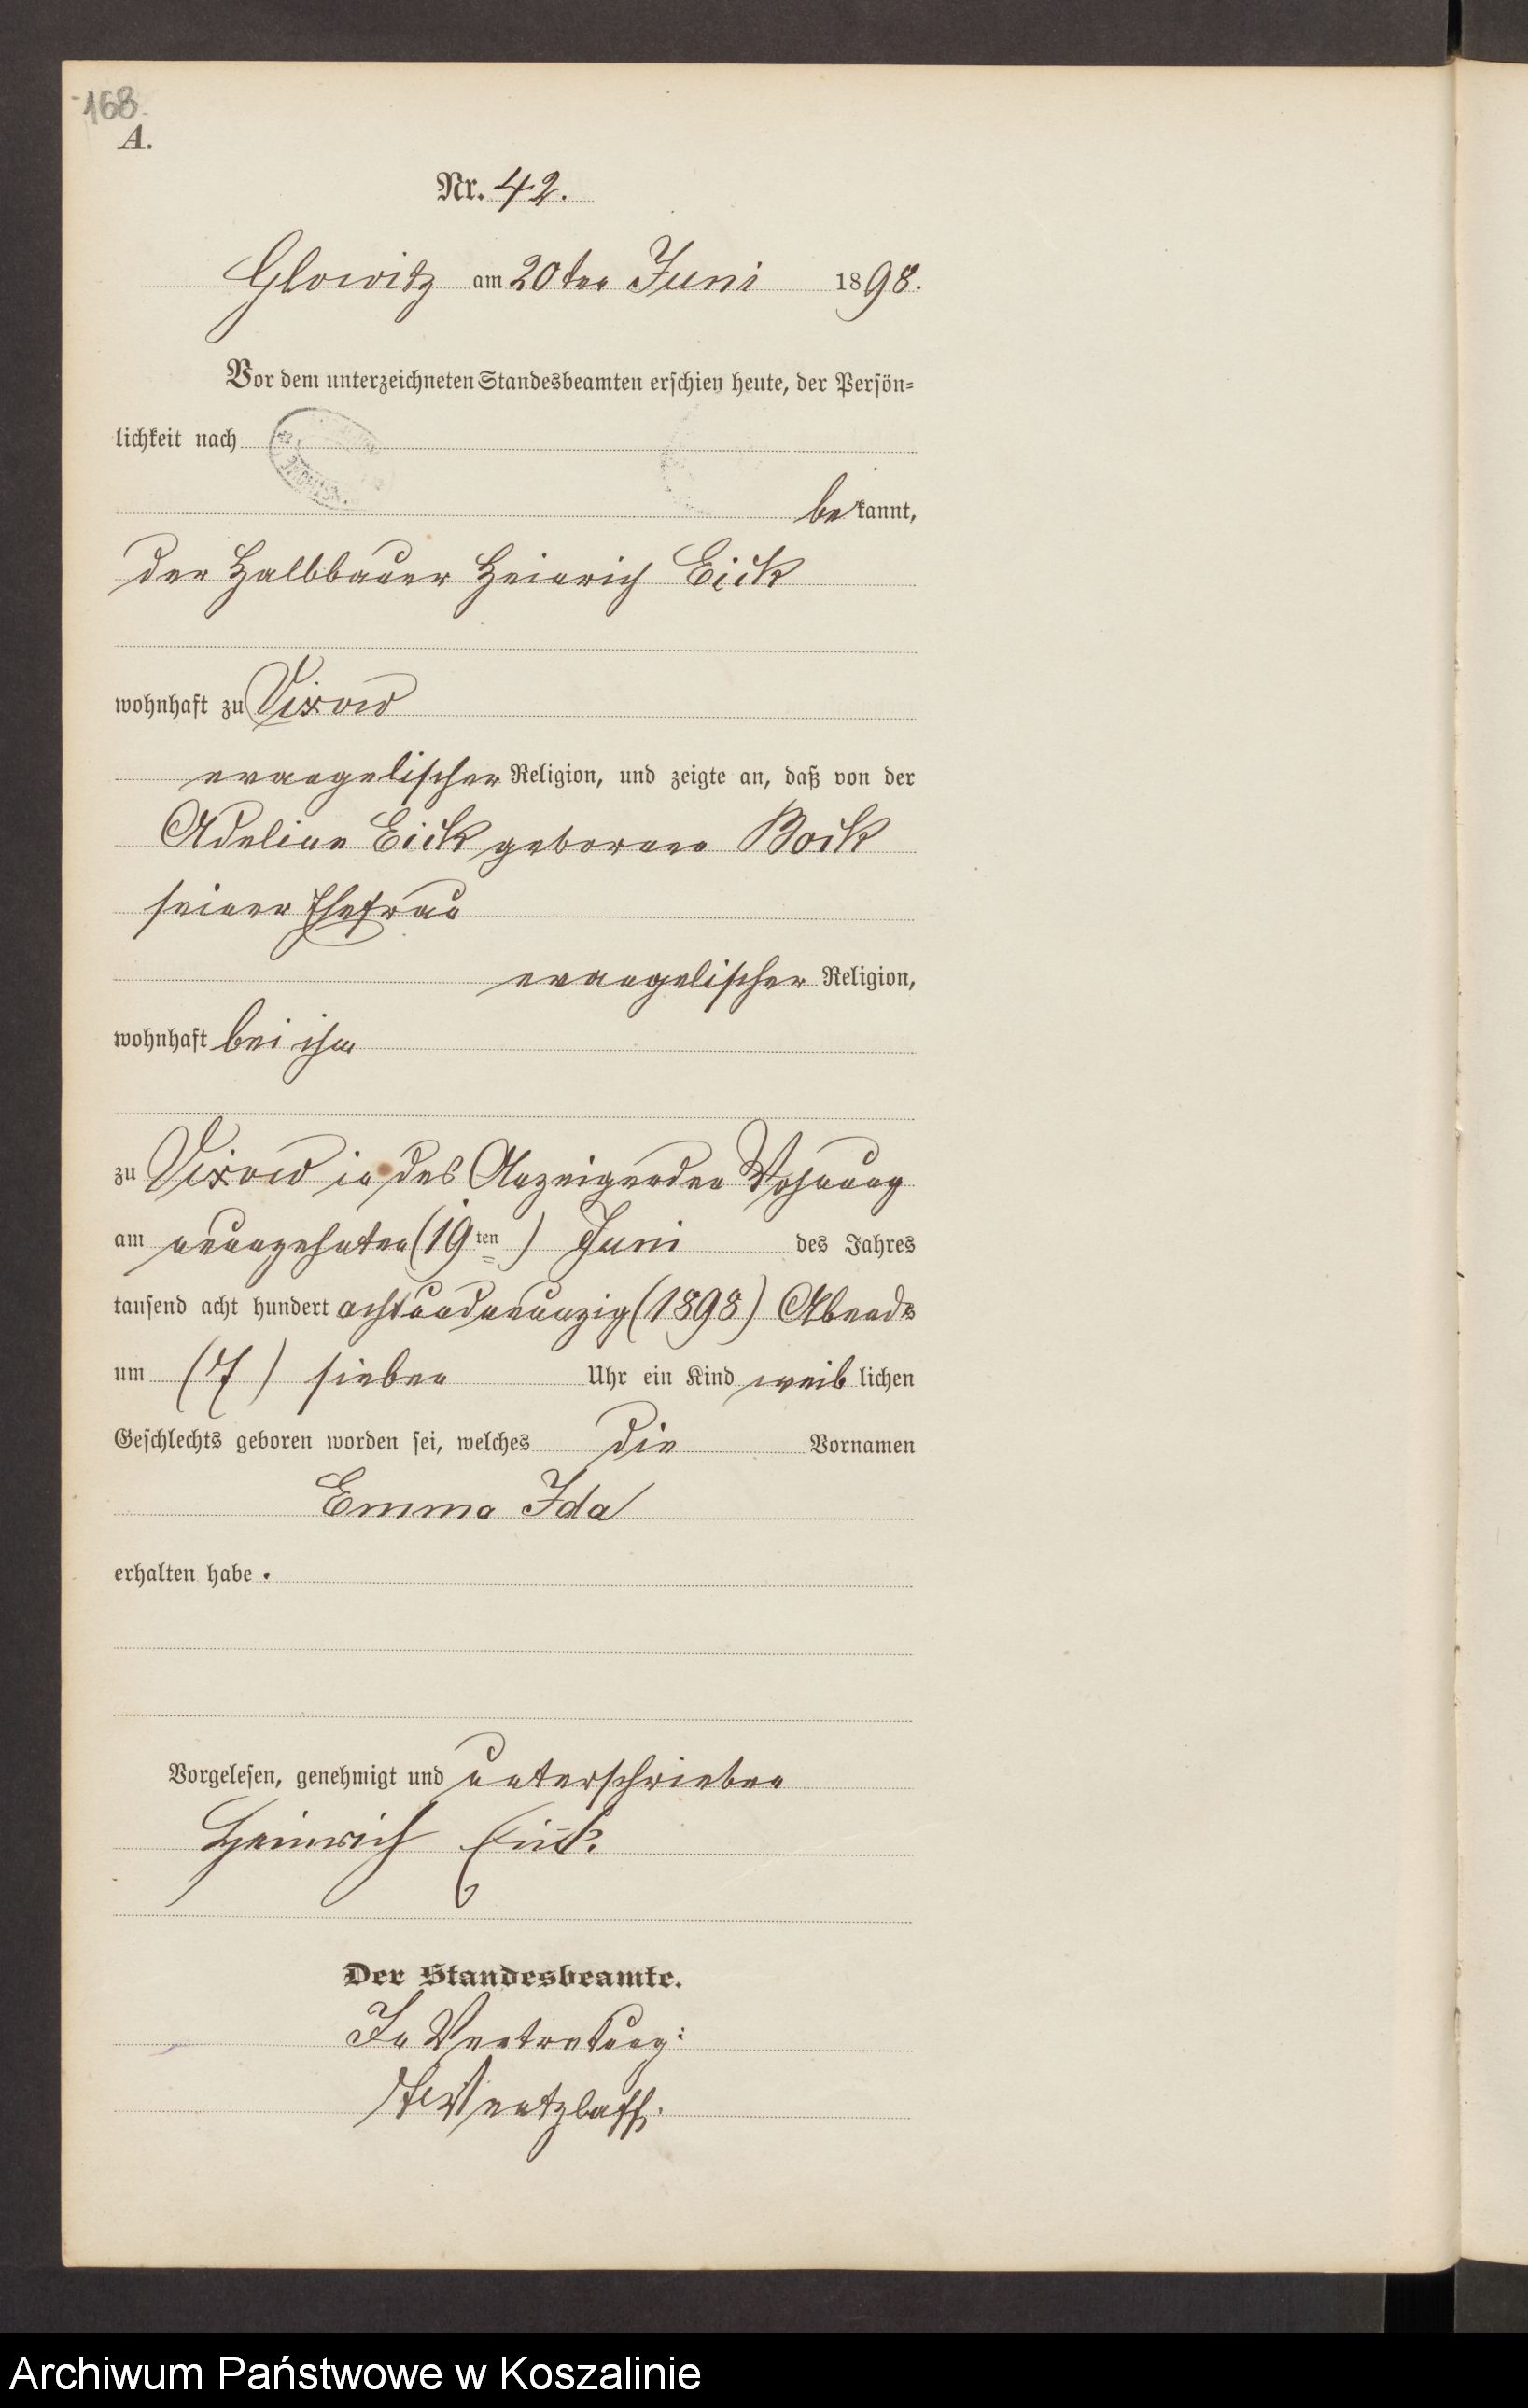 168.
A.
Nr. 42.
Glowitz am 20ten Juni 1898.
Vor dem unterzeichneten Standesbeamten erschien heute, der Persön=
lichkeit nach
bekannt,
der Halbbauer Heinrich Eick
wohnhaft zu Vixow
evangelischer Religion, und zeigte an, daß von der
Adeline Eick geborenen Bock
seiner Ehefrau
evangelischer Religion,
wohnhaft bei ihm
zu Vixow in des Anzeigenden Wohnung
am neunzehnten (19ten) Juni des Jahres
tausend acht hundert achtundneunzig (1898) Abends
um (7) sieben Uhr ein Kind weiblichen
Geschlechts geboren worden sei, welches die Vornamen
Emma Ida
erhalten habe.
Vorgelesen, genehmigt und unterschrieben
Heinrich Eick.
Der Standesbeamte.
In Vertretung:
Ventzlaff.
Archiwum Państwowe w Koszalinie